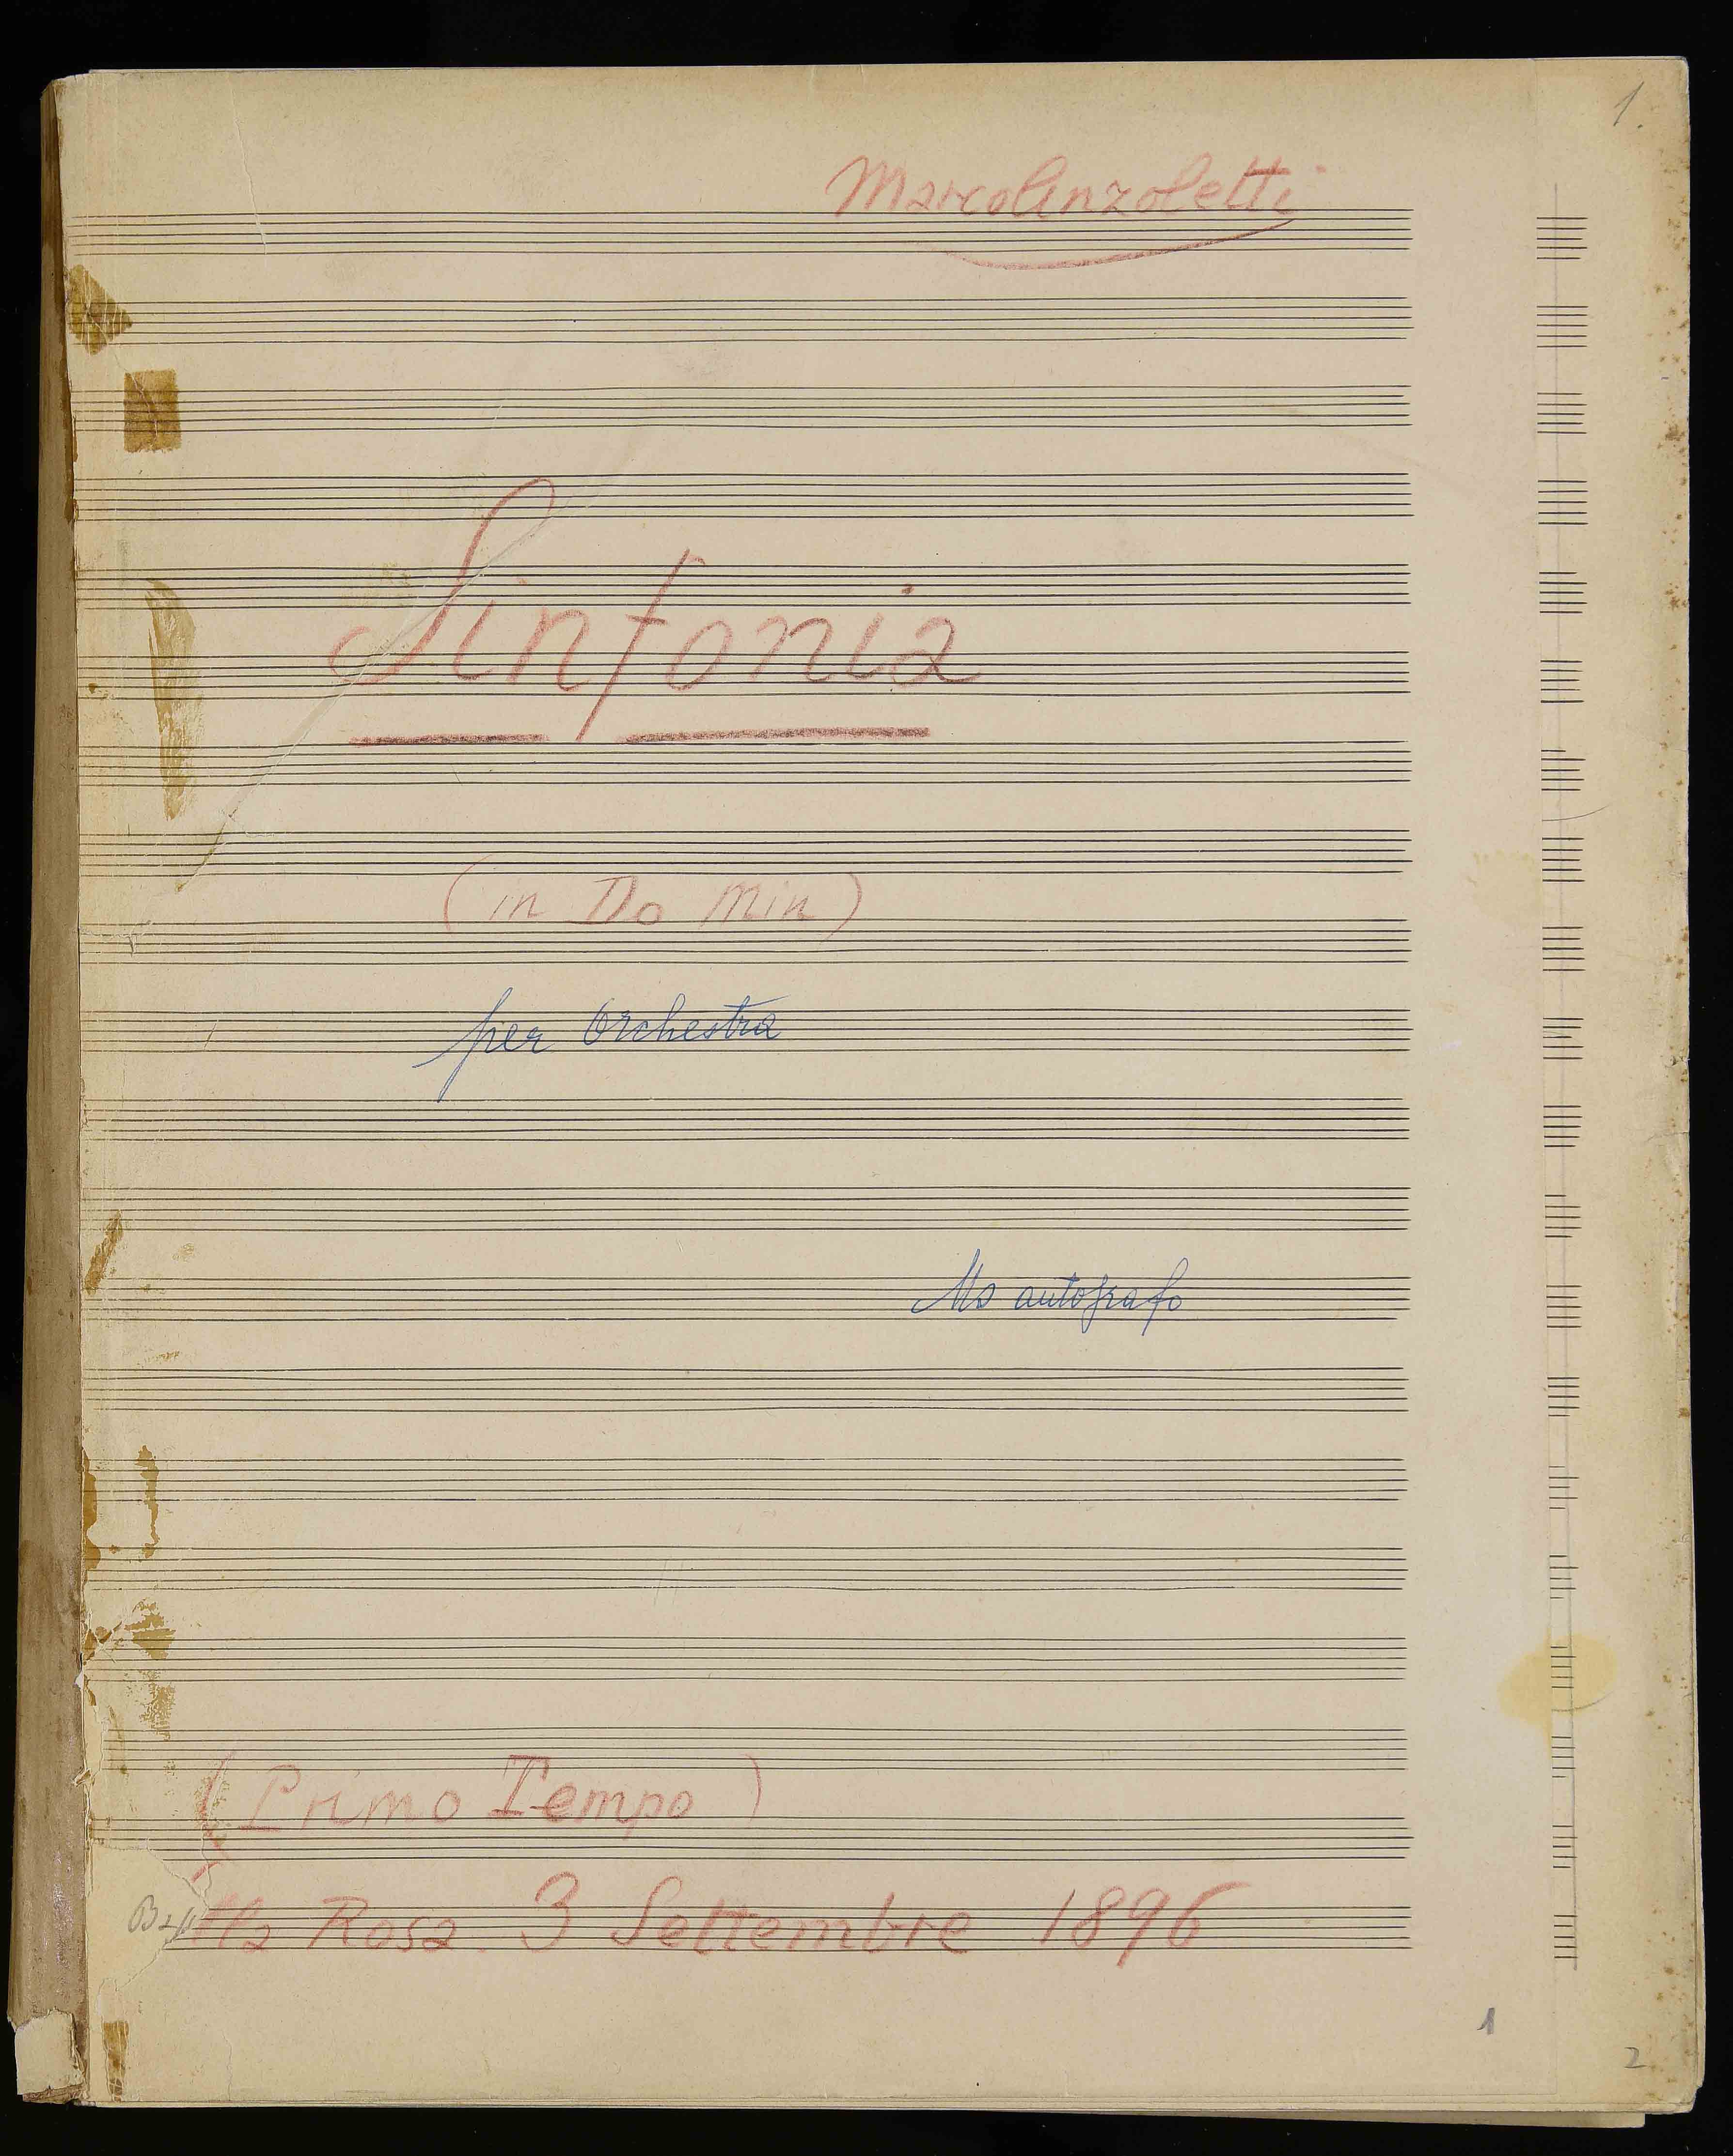 1.
Marco Anzoletti
Sinfonia
(in Do Min)
per Orchestra
Ms autografo
(Primo Tempo)
Rosa. 3 Settembre 1896
1
2